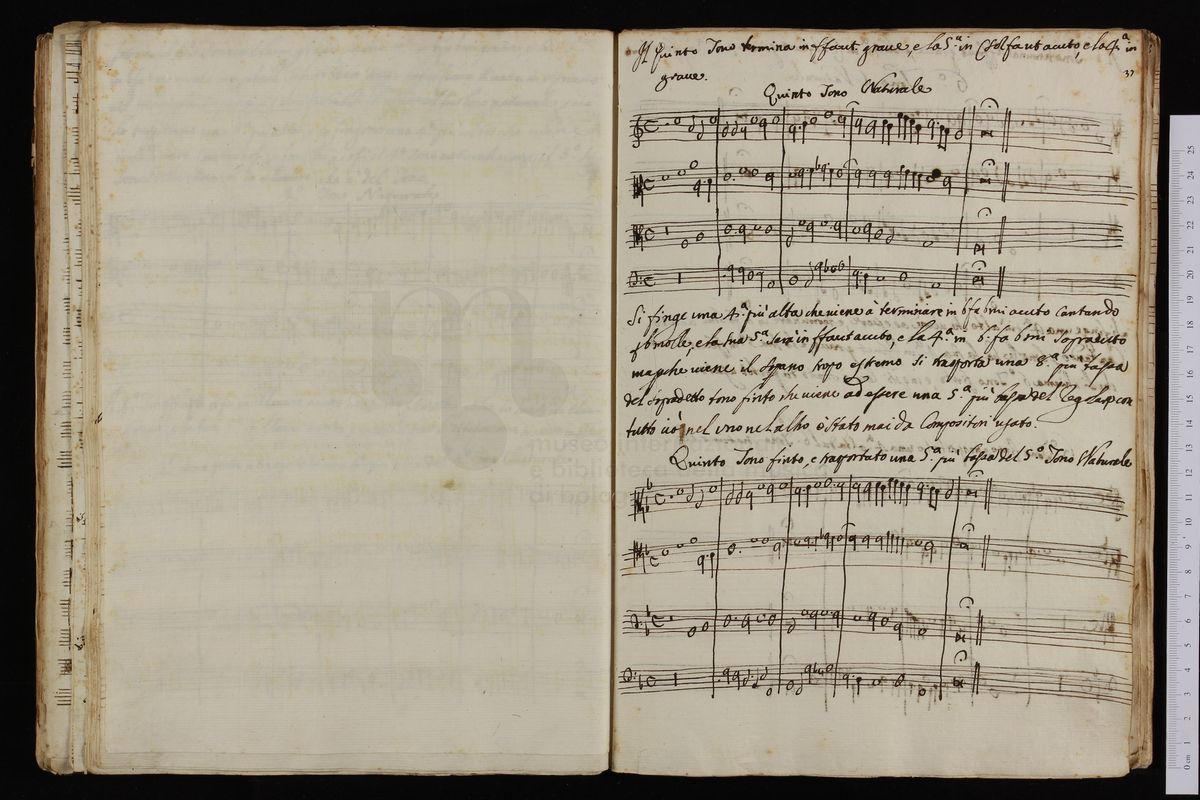 Il Quinto Tono termina in ffaut graue, e la 5.ª in Csolfaut acuto, e la 4.ª in
graue.
37
Quinto Tono Naturale
Si finge una 4.ª più alta che uiene à terminare in bfa bmi acuto Cantando
p bmolle, e la sua 5.ª serà in ffaut acuto, e la 4.ª in b. fa b mi Sopradetto
ma pche uiene il Soprano tropo estremo si trasporta una 8.ª più bassa
del Sopradetto tono finto che uiene ad essere una 5.ª più bassa del con
tutto ciò nel uno ne l'altro è stato mai da Compositori usato.
Quinto Tono finto, e trasportato una 5.ª più bassa del 5.º Tono Naturale
museo
e biblioteca
di bologna
0 cm 1 2 3 4 5 6 7 8 9 10 11 12 13 14 15 16 17 18 19 20 21 22 23 24 25